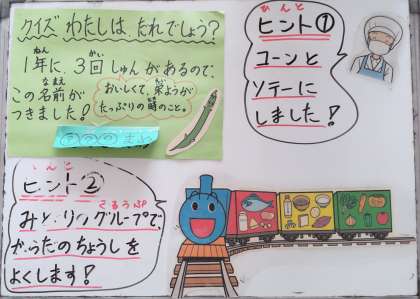 クイズ わたしは、だれでしょう?
1年に、3回しゅんがあるので、
ねん
かい
この名前が
なまえ
つきました!
おいしくて、栄ようが
たっぷりの時のこと。
ヒント①
ひんと
コーンと
ソテーに
しました!
ヒント②
ひんと
みどりのグループで、
ぐるうぷ
からだのちょうしを
よくします!